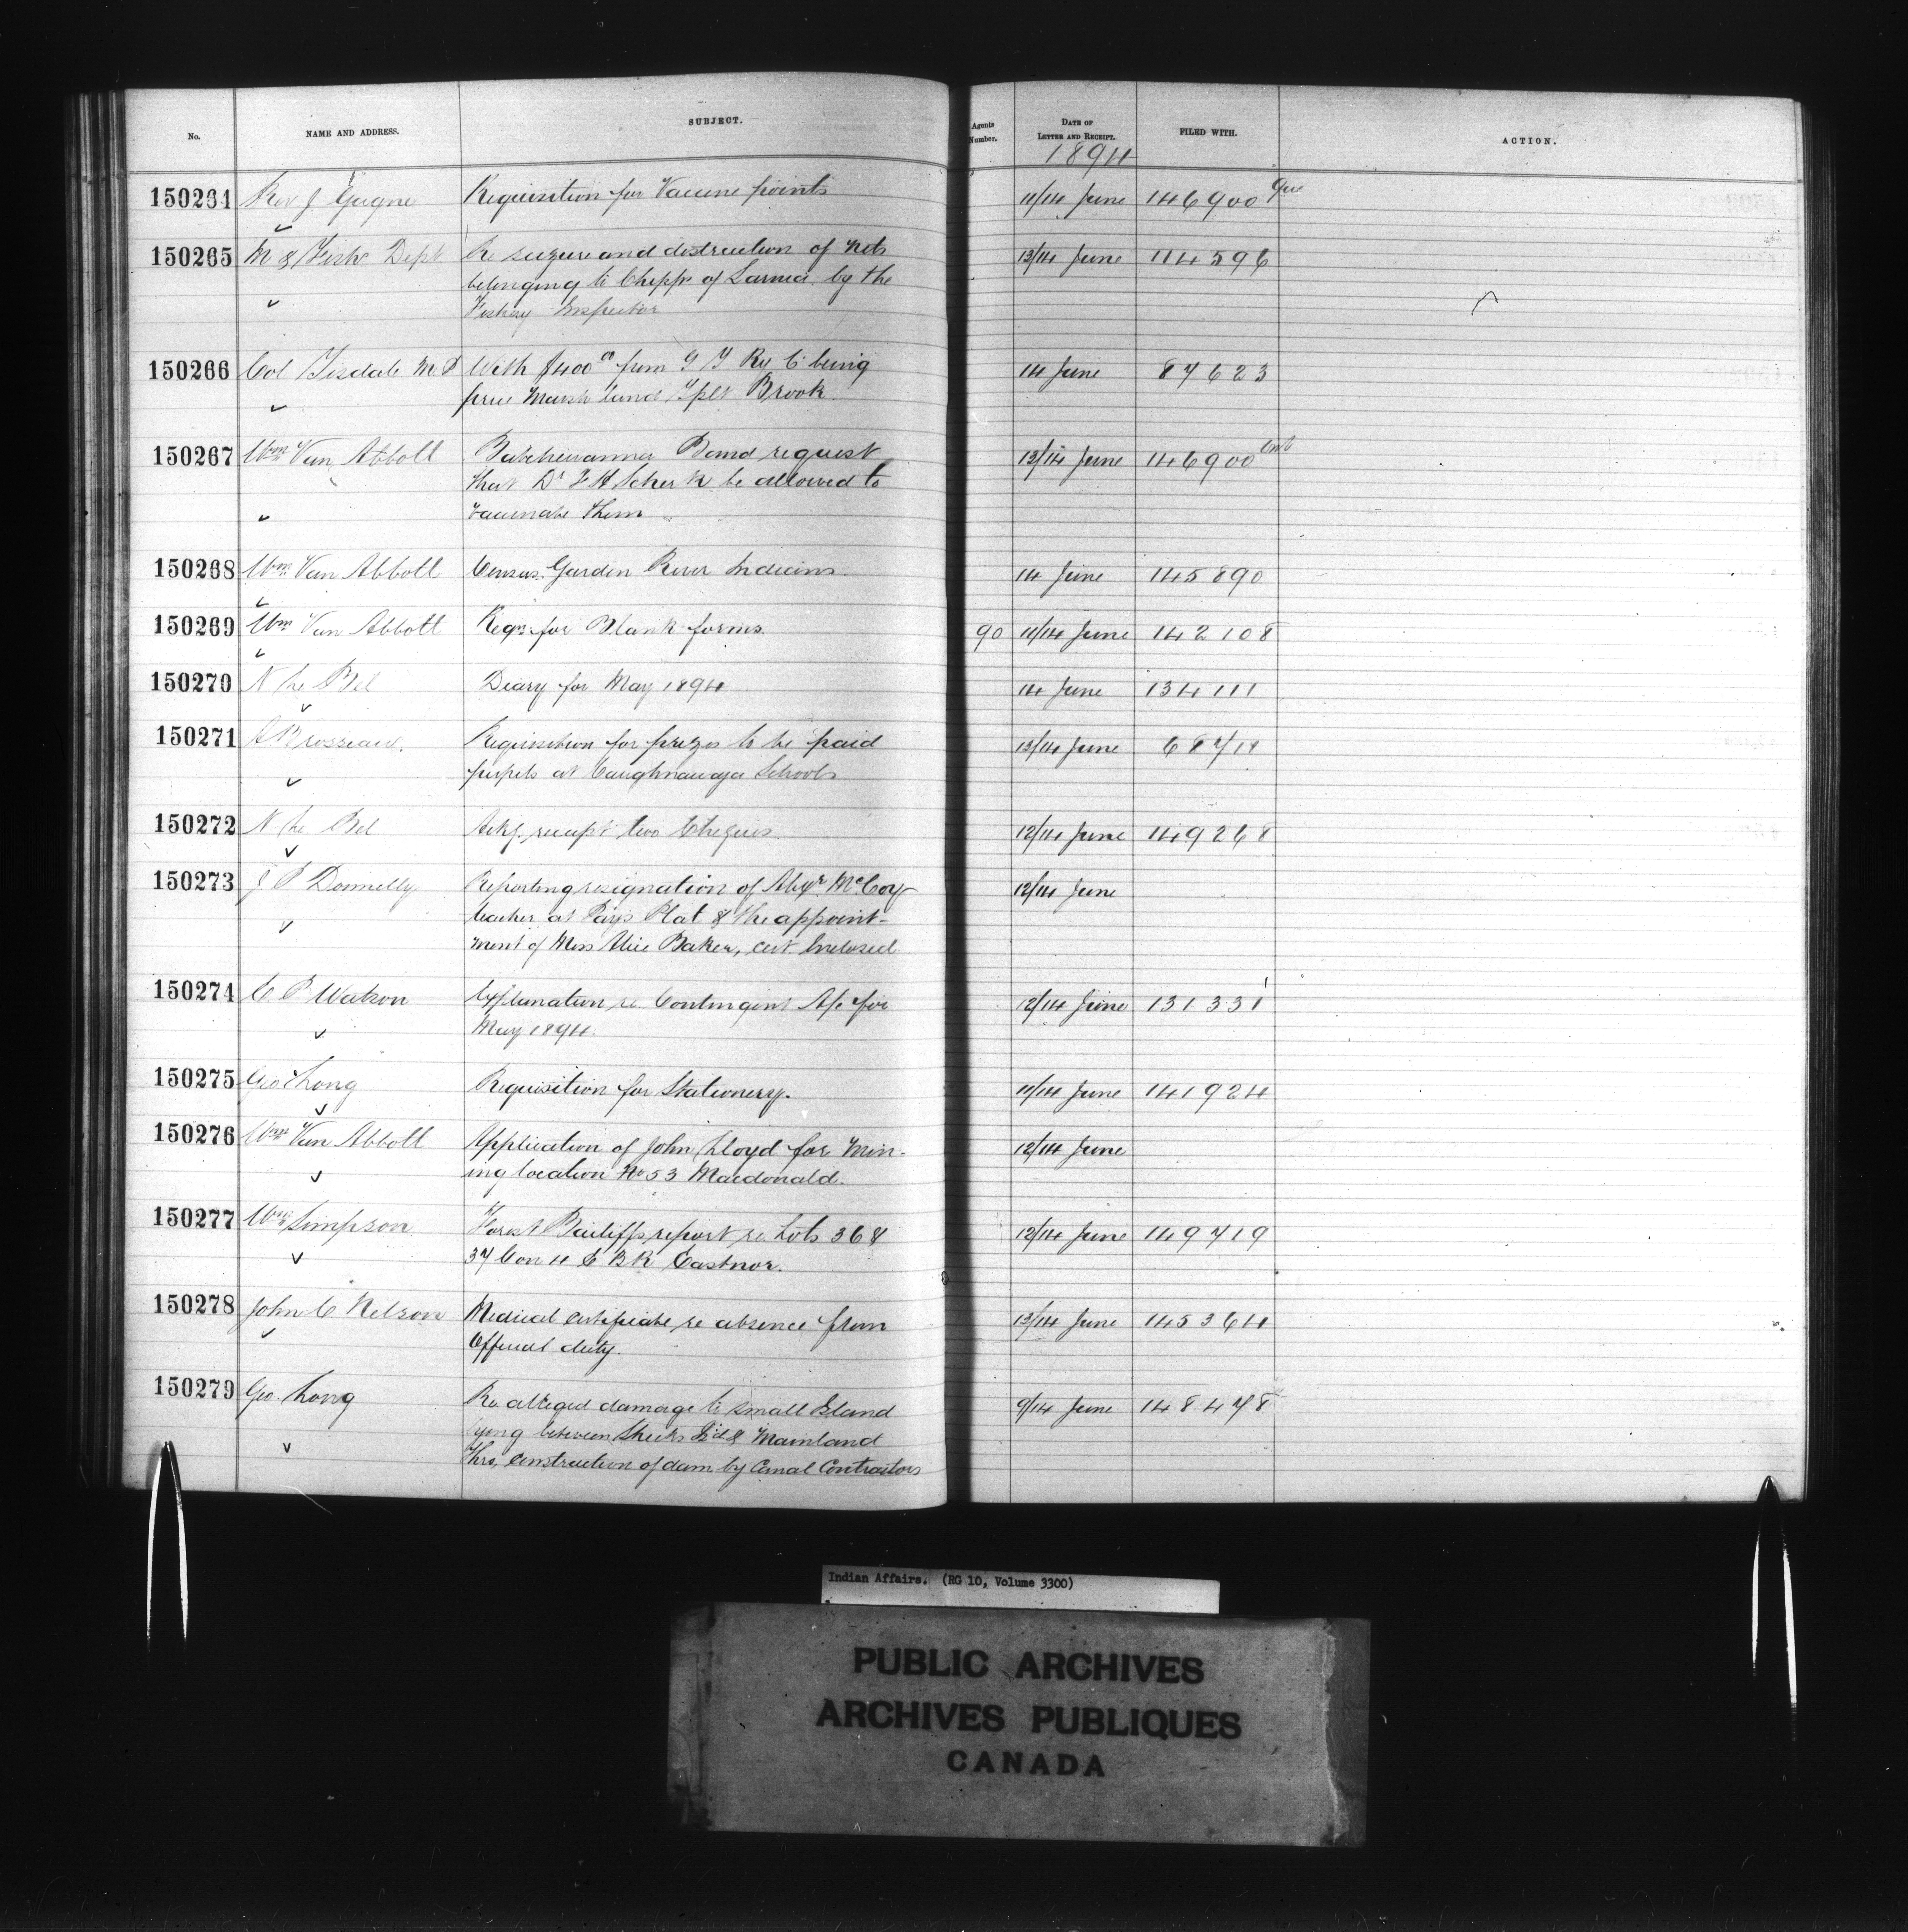 No. NAME AND ADDRESS. SUBJECT. Agents Number. DATE OF LETTER AND RECEIPT. FILED WITH. ACTION.
1894
150264 Rev J. Gagne Requisition for Vaccine points 11/14 June 146900 Que
150265 M & Fish Dept Re seizure and distruction of nets 13/14 June 114596
belonging to Chipps of Sarnia by the
Fishery Inspector
150266 Col Tisdale M P With $400 00 from G T Ry Co being 14 June 87623
price Marsh land Tplt Brook
150267 Wm Van Abbott Batchewanna Band request 12/14 June 146900 Ont
that Dr F H Scherk be allowed to
vaccinate them
150268 Wm Van Abbott Census. Garden River Indians. 14 June 145890
150269 Wm Van Abbott Reqn for Blank forms. 90 11/14 June 142108
150270 N Le Bel Diary for May 1894 14 June 134111
150271 A Brosseau. Requisition for prizes to be paid 13/14 June 68711
pupils at Caughnawaga Schools
150272 N Le Bel Ackg. receipt two Cheques. 12/14 June 149268
150273 J P Donnelly Reporting resignation of Alexr McCoy 12/14 June
teacher at Pays Plat & the appoint-
ment of Miss Alice Baker, cert. Inclosed
150274 C. P. Watson Explanation re Contingent A/c for 12/14 June 131331
May 1894.
150275 Geo Long Requisition for Stationery. 11/14 June 141924
150276 Wm Van Abbott Application of John Lloyd for Min- 12/14 June
ing location No 53 Macdonald.
150277 Wm Simpson Forest Bailiffs report re Lots 36 & 12/14 June 149719
37 Con 4 E B R Eastnor.
150278 John C Nelson Medical certificate re absence from 13/14 June 145364
Official duty.
150279 Geo. Long Re alleged damage to small Island 9/14 June 148478
lying between Sheeks Isd & Mainland
thro, construction of dam by Canal Contractors
Indian Affairs. (RG 10, Volume 3300)
PUBLIC ARCHIVES
ARCHIVES PUBLIQUES
CANADA